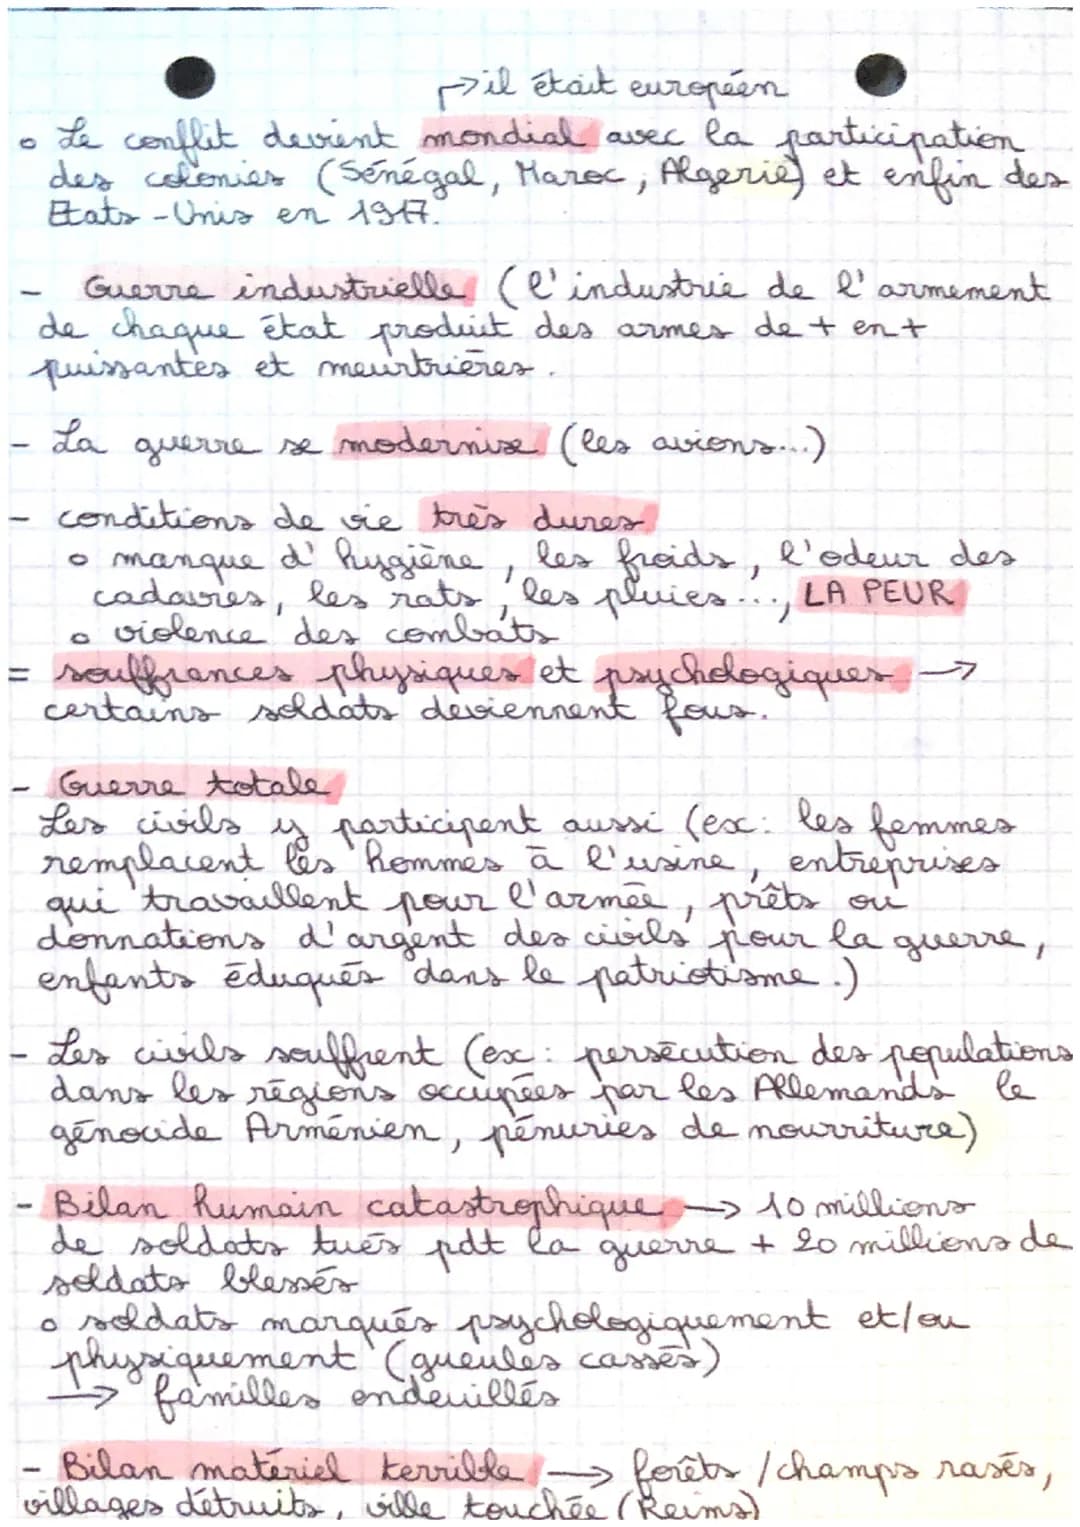 →il était européen
o Le conflit devient mondial avec la participation
des colonies (Sénégal, Maroc, Algerie) et enfin des
Etats-Unis en 1917.
- Guerre industrielle (l'industrie de l'armement
de chaque état produit des armes de + en +
puissantes et meurtrières.
- La guerre se modernise (les avions...)
- conditions de vie très dures
o manque d'hygiène, les froids, l'odeur des
cadavres, les rats, les pluies..., LA PEUR
o violence des combats
= souffrances physiques et psychologiques →
certains soldats deviennent fous.
- Guerre totale
Les civils y participent aussi (ex: les femmes
remplacent les hommes à l'usine, entreprises
qui travaillent pour l'armée, prêts ou
donnations d'argent des civils pour la guerre,
enfants éduqués dans le patriotisme.)
- Les civils souffrent (ex: persécution des populations
dans les régions occupées par les Allemands le
génocide Arménien, pénuries de nourriture)
- Bilan humain catastrophique → 10 millions
de soldats tués pdt la guerre + 20 millions de
soldats blessés
o soldats marqués psychologiquement et/ou
physiquement (gueules cassés)
→ familles endeuillés
- Bilan matériel terrible → forêts / champs rasés,
villages détruits, ville touchée (Reims)